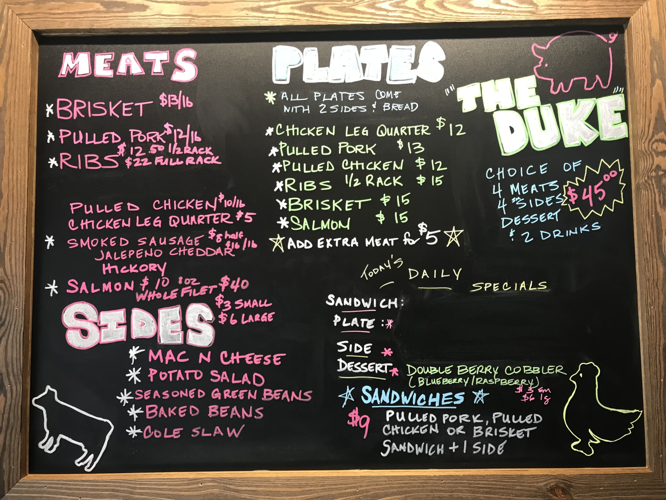 MEATS
* BRISKET $13/lb
* PULLED PORK $12/lb
* RIBS $12.50 1/2 RACK
$22 FULL RACK
PULLED CHICKEN $10/lb
CHICKEN LEG QUARTER $5
* SMOKED SAUSAGE $8 half
$16/lb
JALAPENO CHEDDAR
HICKORY
* SALMON $10 8oz $40
WHOLE FILET
SIDES
$3 SMALL
$6 LARGE
* MAC N CHEESE
* POTATO SALAD
* SEASONED GREEN BEANS
* BAKED BEANS
* COLE SLAW
PLATES
* ALL PLATES COME
WITH 2 SIDES & BREAD
* CHICKEN LEG QUARTER $12
* PULLED PORK $13
* PULLED CHICKEN $12
* RIBS 1/2 RACK $15
* BRISKET $15
* SALMON $15
☆ ADD EXTRA MEAT for $5 ☆
TODAY'S DAILY SPECIALS
SANDWICH:
PLATE: *
SIDE *
DESSERT * DOUBLE BERRY COBBLER
(BLUEBERRY/RASPBERRY)
$3 sm
$6 lg
☆ SANDWICHES ☆
$9 PULLED PORK, PULLED
CHICKEN OR BRISKET
SANDWICH + 1 SIDE
"THE
DUKE"
CHOICE OF
4 MEATS
4 SIDES
DESSERT
& 2 DRINKS
$45.00